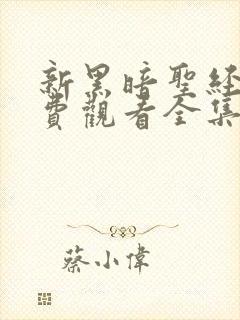 新黑暗聖經
費觀看全集
蔡小偉